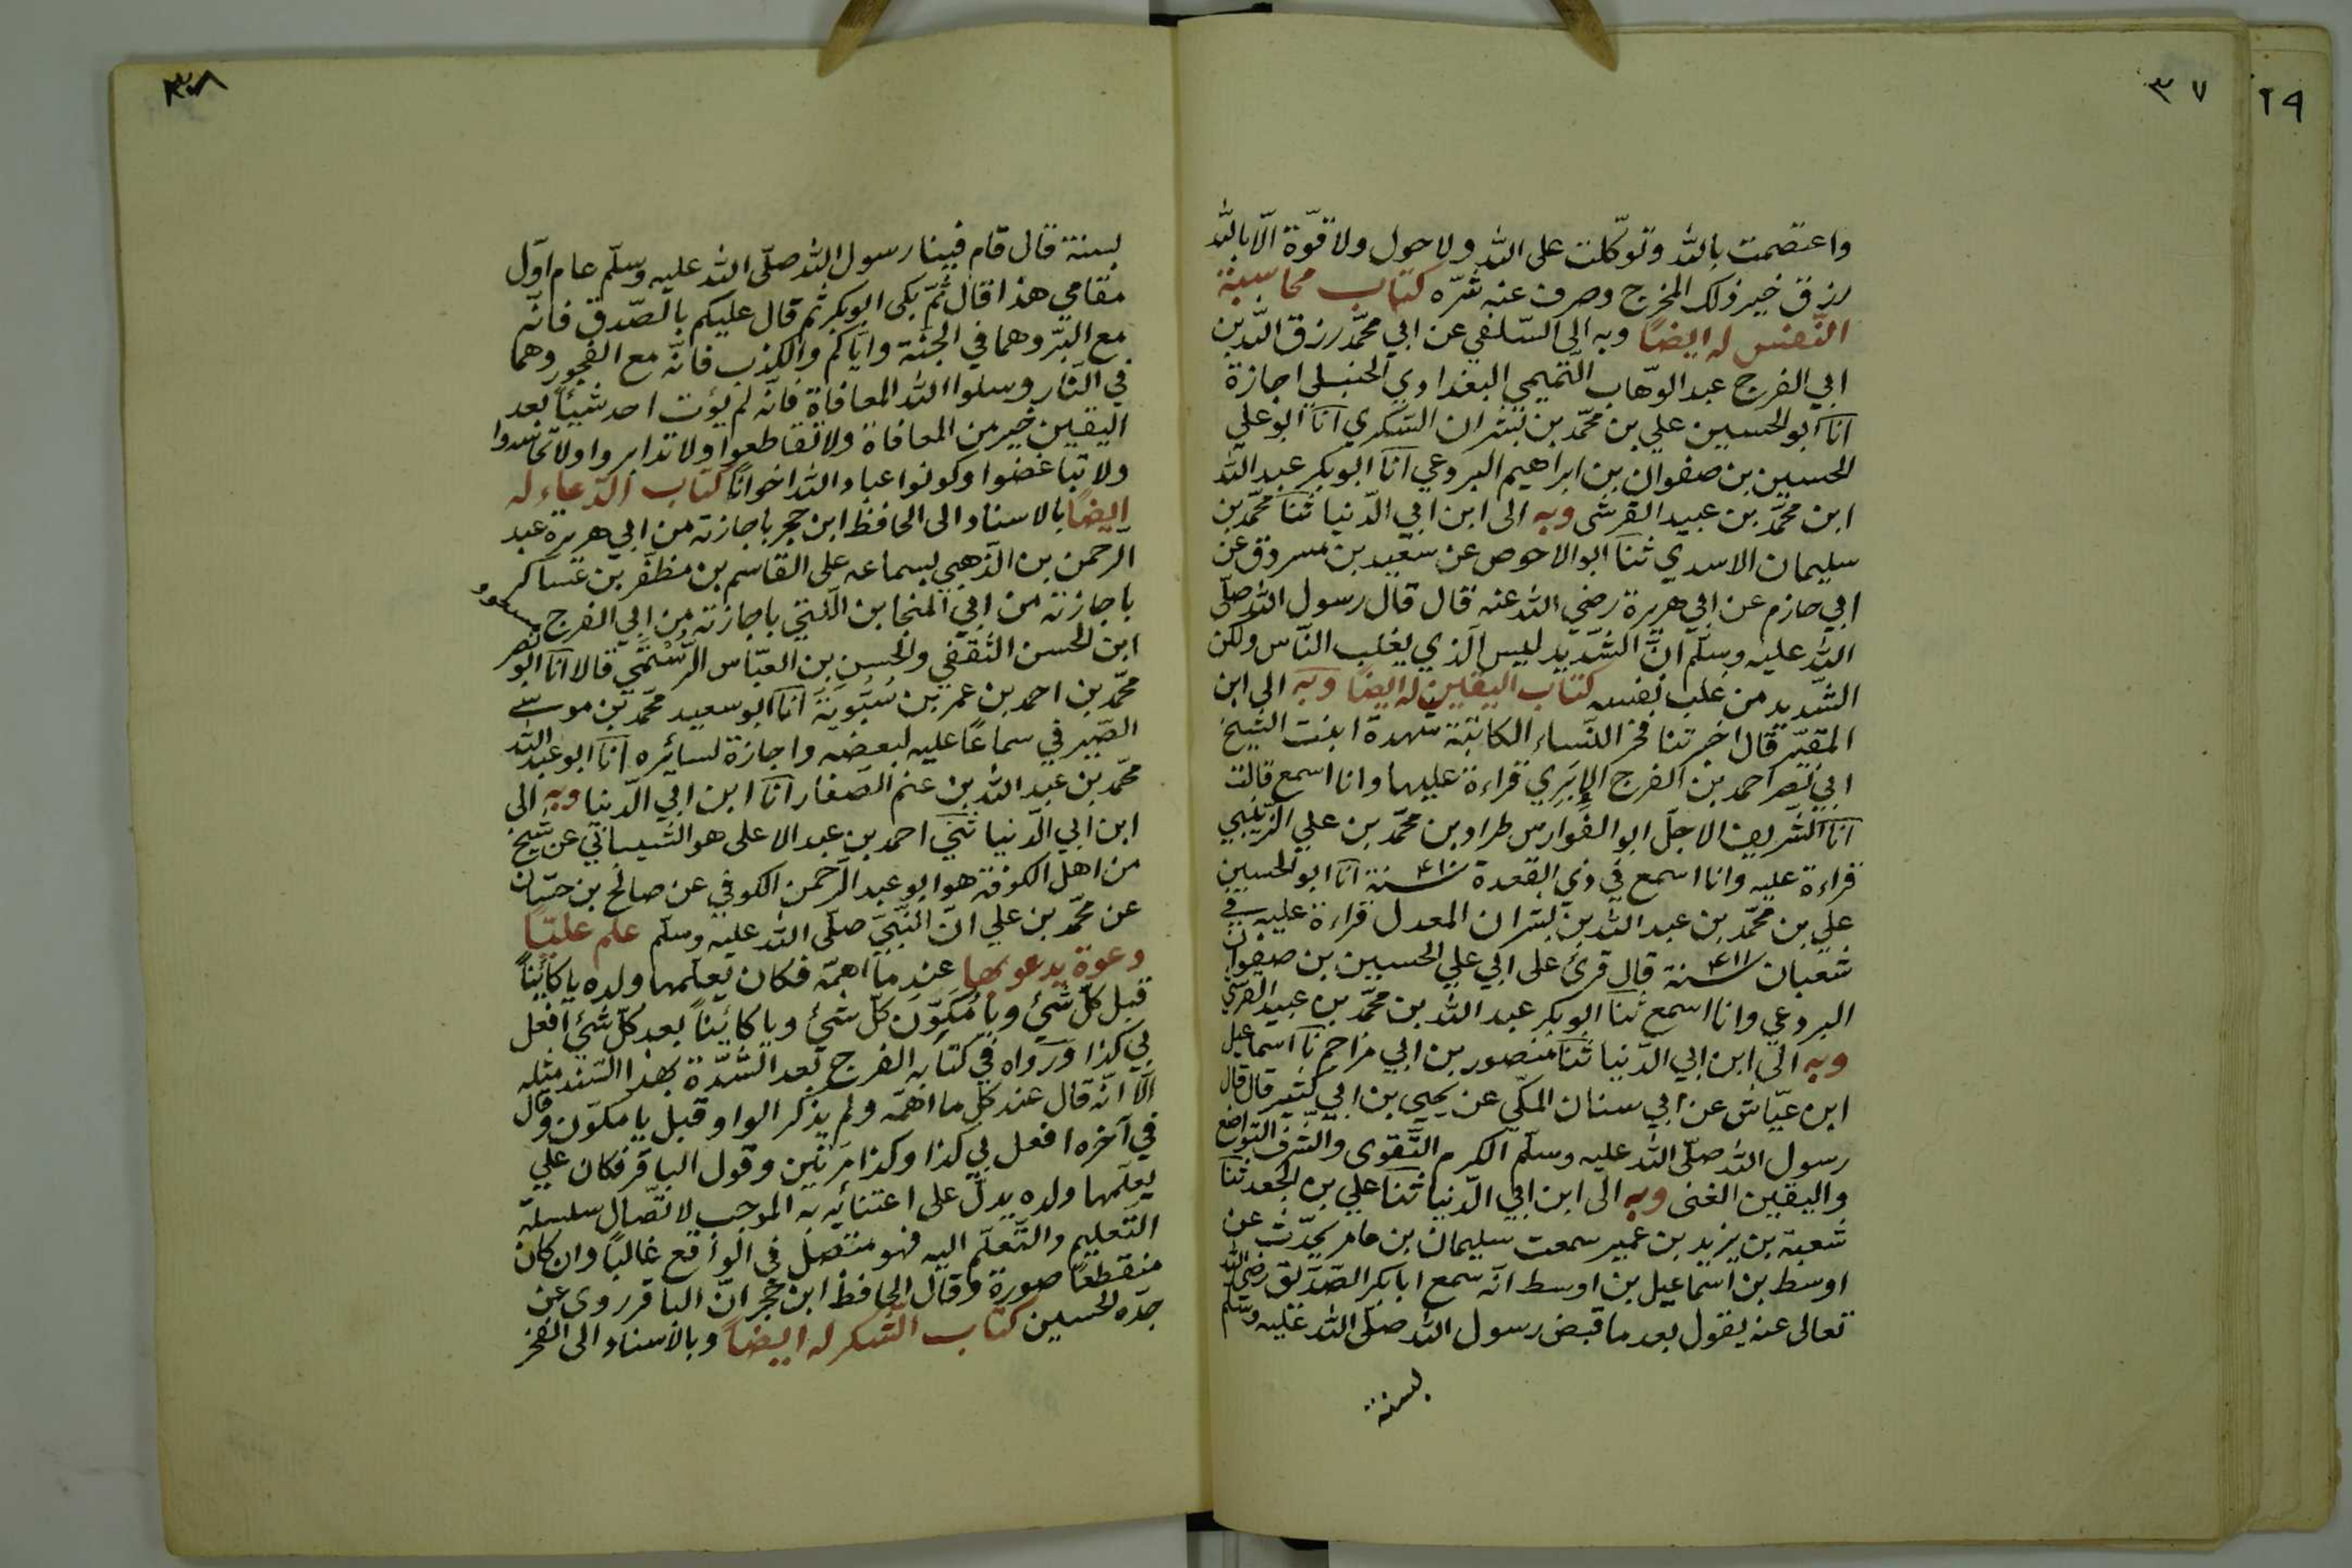 ٣٧
٢٩
واعتصمت بالله وتوكّلت على الله ولا حول ولا قوّة الّا بالله
رزق خير ذلك المخرج وصرف عنه شرّه كتاب محاسبة
النّفس له ايضًا وبه الى السّلفي عن ابي محمّد رزق الله بن
ابي الفرج عبد الوهّاب التّميمي البغدادي الحنبلي اجازة
انا ابو الحسين علي بن محمّد بن بشران السّكري انا ابو علي
الحسين بن صفوان بن ابراهيم البردعي انا ابو بكر عبد الله
ابن محمّد بن عبيد القرشى وبه الى ابن ابي الدّنيا ثنا محمّد بن
سليمان الاسدي ثنا ابو الاحوص عن سعيد بن مسروق عن
ابي حازم عن ابي هريرة رضي الله عنه قال قال رسول الله صلّى
الله عليه وسلّم انّ الشّديد ليس الّذي يغلب النّاس ولكن
الشّديد من غلب نفسه كتاب اليقين له ايضًا وبه الى ابن
المقيّر قال اخبرتنا فخر النّساء الكاتبة شهدة ابنت الشّيخ
ابي نصر احمد بن الفرج الإبَري قراءة عليها وانا اسمع قالت
انا الشّريف الاجلّ ابو الفوارس طراد بن محمّد بن علي الزّينبي
قراءة عليه وانا اسمع في ذي القعدة سنة ٤٨٠ انا ابو الحسين
علي بن محمّد بن عبد الله بن بشران المعدل قراءة عليه في
شعبان سنة ٤١١ قال قرئ على ابي علي الحسين بن صفوان
البردعي وانا اسمع ثنا ابو بكر عبد الله بن محمّد بن عبيد القرشي
وبه الى ابن ابي الدّنيا ثنا منصور بن ابي مزاحم نا اسماعيل
ابن عيّاش عن ابي سنان المكّي عن يحيى بن ابي كثير قال قال
رسول الله صلّى الله عليه وسلّم الكرم التّقوى والشّرف التّواضع
واليقين الغنى وبه الى ابن ابي الدّنيا ثنا علي بن الجعد ثنا
شعبة بن يزيد بن عمير سمعت سليمان بن عامر يحدّث عن
اوسط بن اسماعيل بن اوسط انّه سمع ابا بكر الصّدّيق رضي الله
تعالى عنه يقول بعد ما قبض رسول الله صلّى الله عليه وسلّم
بسنة
٣٨
بسنة قال قام فينا رسول الله صلّى الله عليه وسلّم عام اوّل
مقامي هذا قال ثمّ بكى ابو بكر ثم قال عليكم بالصّدق فانّه
مع البرّ وهما في الجنّة وايّاكم والكذب فانّه مع الفجور وهما
في النّار وسلوا الله المعافاة فانّه لم يؤت احد شيئًا بعد
اليقين خير من المعافاة ولا تقاطعوا ولا تدابروا ولا تحاسدوا
ولا تباغضوا وكونوا عباد الله اخوانًا كتاب الدّعاء له
ايضًا بالاسناد الى الحافظ ابن حجر باجازته من ابي هريرة عبد
الرّحمن بن الذّهبي بسماعه على القاسم بن مظفّر بن عساكر
باجازته من ابي المنجا بن اللّتي باجازته من ابي الفرج مسعود
ابن الحسن الثّقفي والحسن بن العبّاس الرُّسْتُمي قالا انا ابو نصر
محمّد بن احمد بن عمر بن سُبُّويَة انا ابو سعيد محمّد بن موسى
الصّيرفي سماعًا عليه لبعضه واجازة لسائره انا ابو عبد الله
محمّد بن عبد الله بن غنم الصّفار انا ابن ابي الدّنيا وبه الى
ابن ابي الدّنيا ثني احمد بن عبد الاعلى هو الشّيباني عن شيخ
من اهل الكوفة هو ابو عبد الرّحمن الكوفي عن صالح بن حسّان
عن محمّد بن علي انّ النّبيّ صلّى الله عليه وسلّم علم عليًّا
دعوة يدعو بها عند ما اهمّه فكان يعلّمها ولده يا كائنًا
قبل كلّ شيء ويا مُكوّن كلّ شيء ويا كائنًا بعد كلّ شيء افعل
بي كذا ورواه في كتابه الفرج بعد الشّدّة بهذا السّند مثله
الّا انّه قال عند كل ما اهمّه ولم يذكر الواو قبل يا مكوّن وقال
في آخره افعل بي كذا وكذا مرّتين وقول الباقر فكان علي
يعلّمها ولده يدلّ على اعتنائه به الموجب لاتّصال سلسلة
التّعليم والتّعلّم اليه فهو متّصل في الواقع غالبًا وان كان
منقطعًا صورة وقال الحافظ ابن حجر انّ الباقر روى عن
جدّه الحسين كتاب الشّكر له ايضًا وبالاسناد الى الفخر